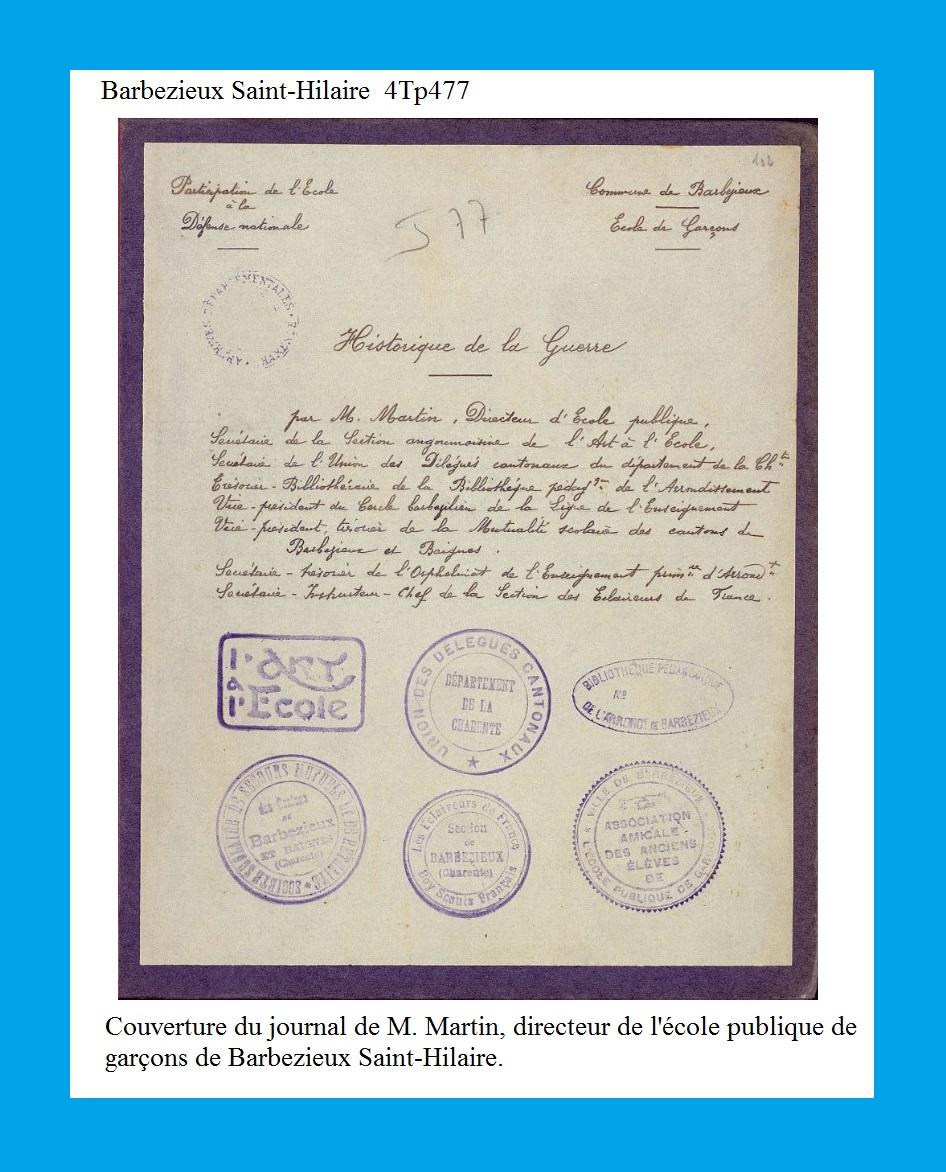 Barbezieux Saint-Hilaire 4Tp477
102
Participation de l'Ecole
à la
Défense nationale
J 77
Commune de Barbezieux
Ecole de Garçons
ARCHIVES DÉPARTEMENTALES
Historique de la Guerre
par M. Martin, Directeur d'Ecole publique,
Secrétaire de la Section angoumoisine de l'Art à l'Ecole,
Secrétaire de l'Union des Délégués cantonaux du département de la Chte
Trésorier-Bibliothécaire de la Bibliothèque pédagque de l'Arrondissement
Vice-président du Cercle barbezilien de la Ligue de l'Enseignement
Vice-président, trésorier de la Mutualité scolaire des cantons de
Barbezieux et Baignes.
Secrétaire-trésorier de l'Orphelinat de l'Enseignement primre d'Arrondt
Secrétaire-Instructeur-Chef de la Section des Eclaireurs de France.
l'ART
à
l'Ecole
UNION DES DÉLÉGUÉS CANTONAUX
DÉPARTEMENT
DE LA
CHARENTE
BIBLIOTHÈQUE PÉDAGOGIQUE
No
DE L'ARRONDT DE BARBEZIEUX
SOCIÉTÉ SCOLAIRE DE SECOURS MUTUELS ET DE RETRAITE
des Cantons
DE
Barbezieux
ET BAIGNES
(Charente)
Les Eclaireurs de France
Section
de
BARBEZIEUX
(Charente)
Boy Scouts Français
VILLE DE BARBEZIEUX
ASSOCIATION
AMICALE
DES ANCIENS
ÉLÈVES
DE
L'ÉCOLE PUBLIQUE DE GARÇONS
Couverture du journal de M. Martin, directeur de l'école publique de
garçons de Barbezieux Saint-Hilaire.